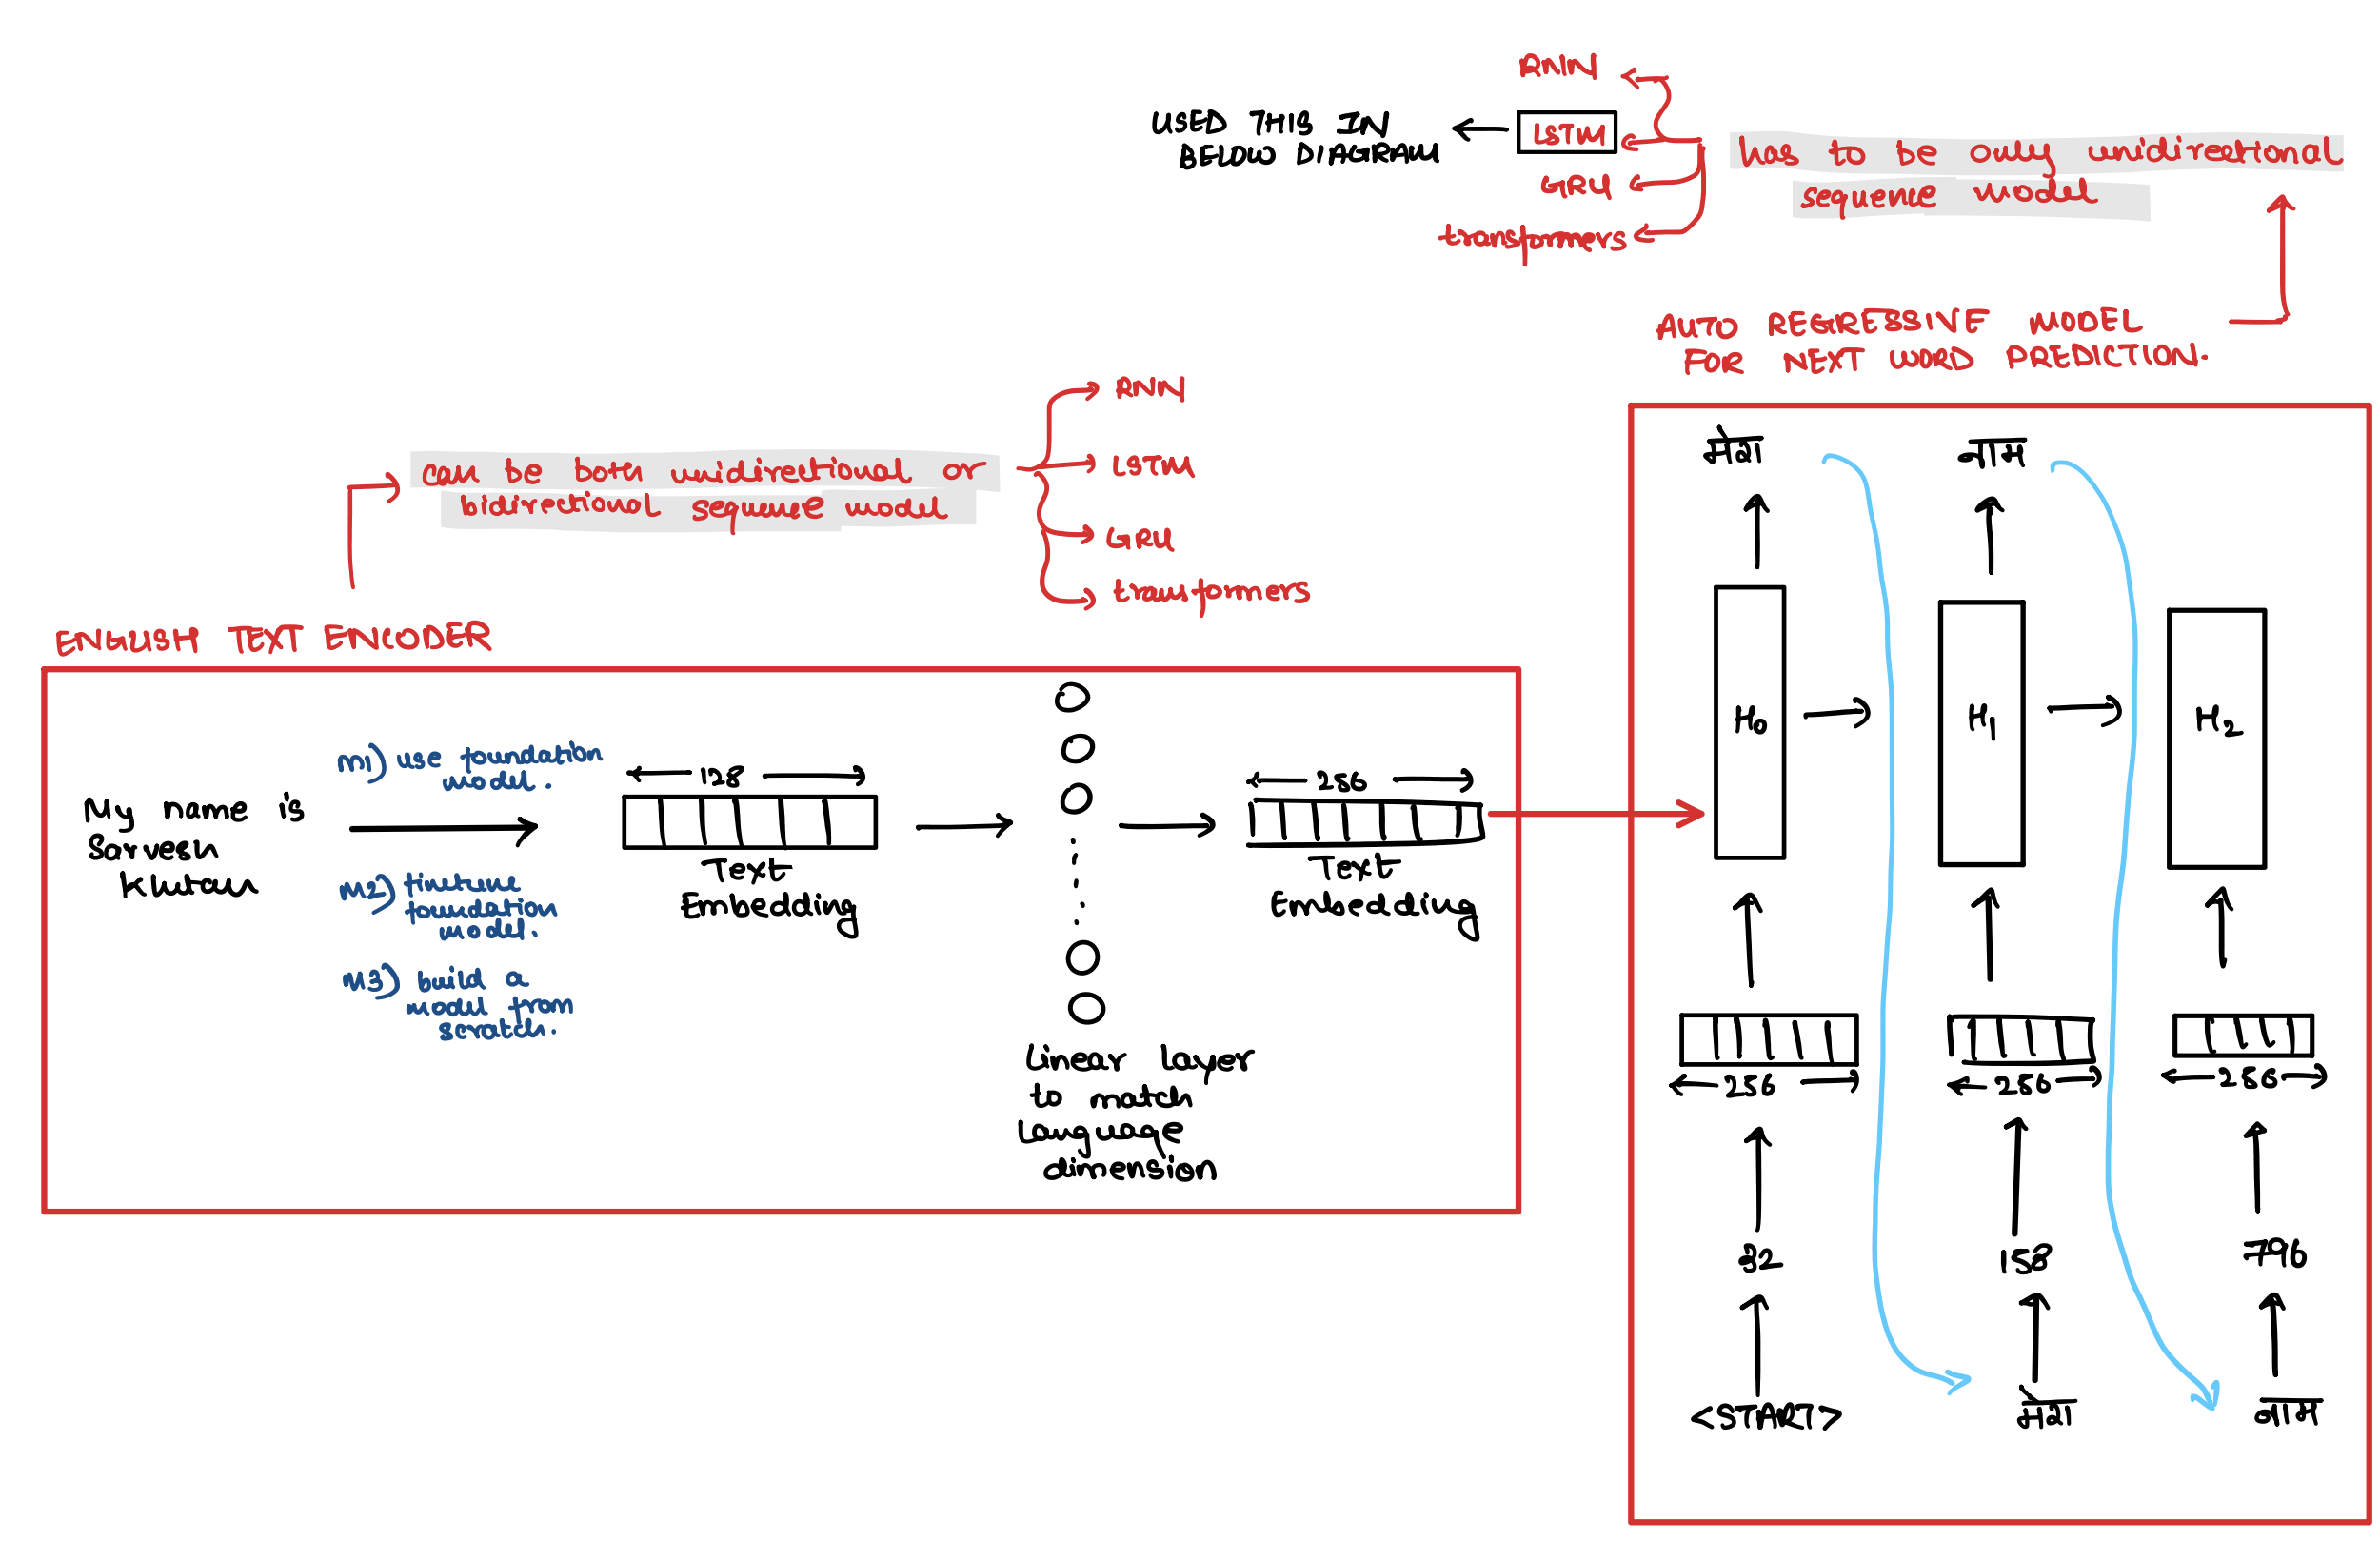 RNN
USED THIS IN
BELOW DIAGRAM
LSTM
GRU
transformers
has to be only unidirectional
sequence model
AUTO REGRESSIVE MODEL
FOR NEXT WORD PREDICTION.
can be both unidirectional or
bidirectional sequence model
RNN
LSTM
GRU
transformers
ENGLISH TEXT ENCODER
My name is
Sarvesh
Khetan
M1) use foundation
model.
M2) finetune
foundation
model.
M3) build a
model from
scratch.
128
Text
Embedding
Linear layer
to match
language
dimension
256
Text
Embedding
मेरा
नाम
H0
H1
H2
256
256
256
32
158
796
<START>
मेरा
नाम